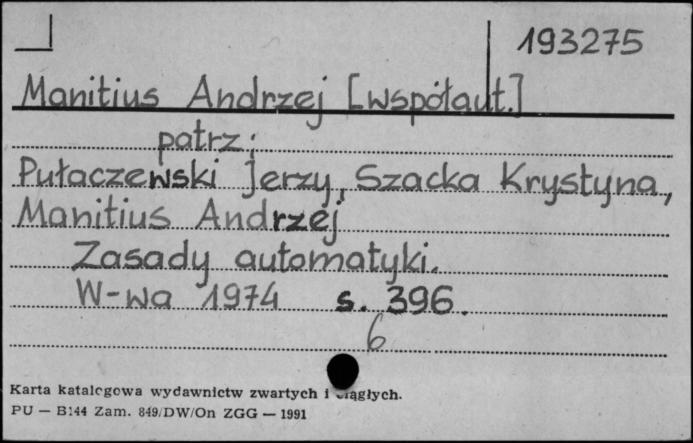 193275
Manitius Andrzej [współaut.]
patrz:
Pułaczewski Jerzy, Szacka Krystyna,
Manitius Andrzej
Zasady automatyki.
W-wa 1974 s. 396.
6
Karta katalogowa wydawnictw zwartych i ciągłych.
PU — B144 Zam. 849/DW/On ZGG — 1991